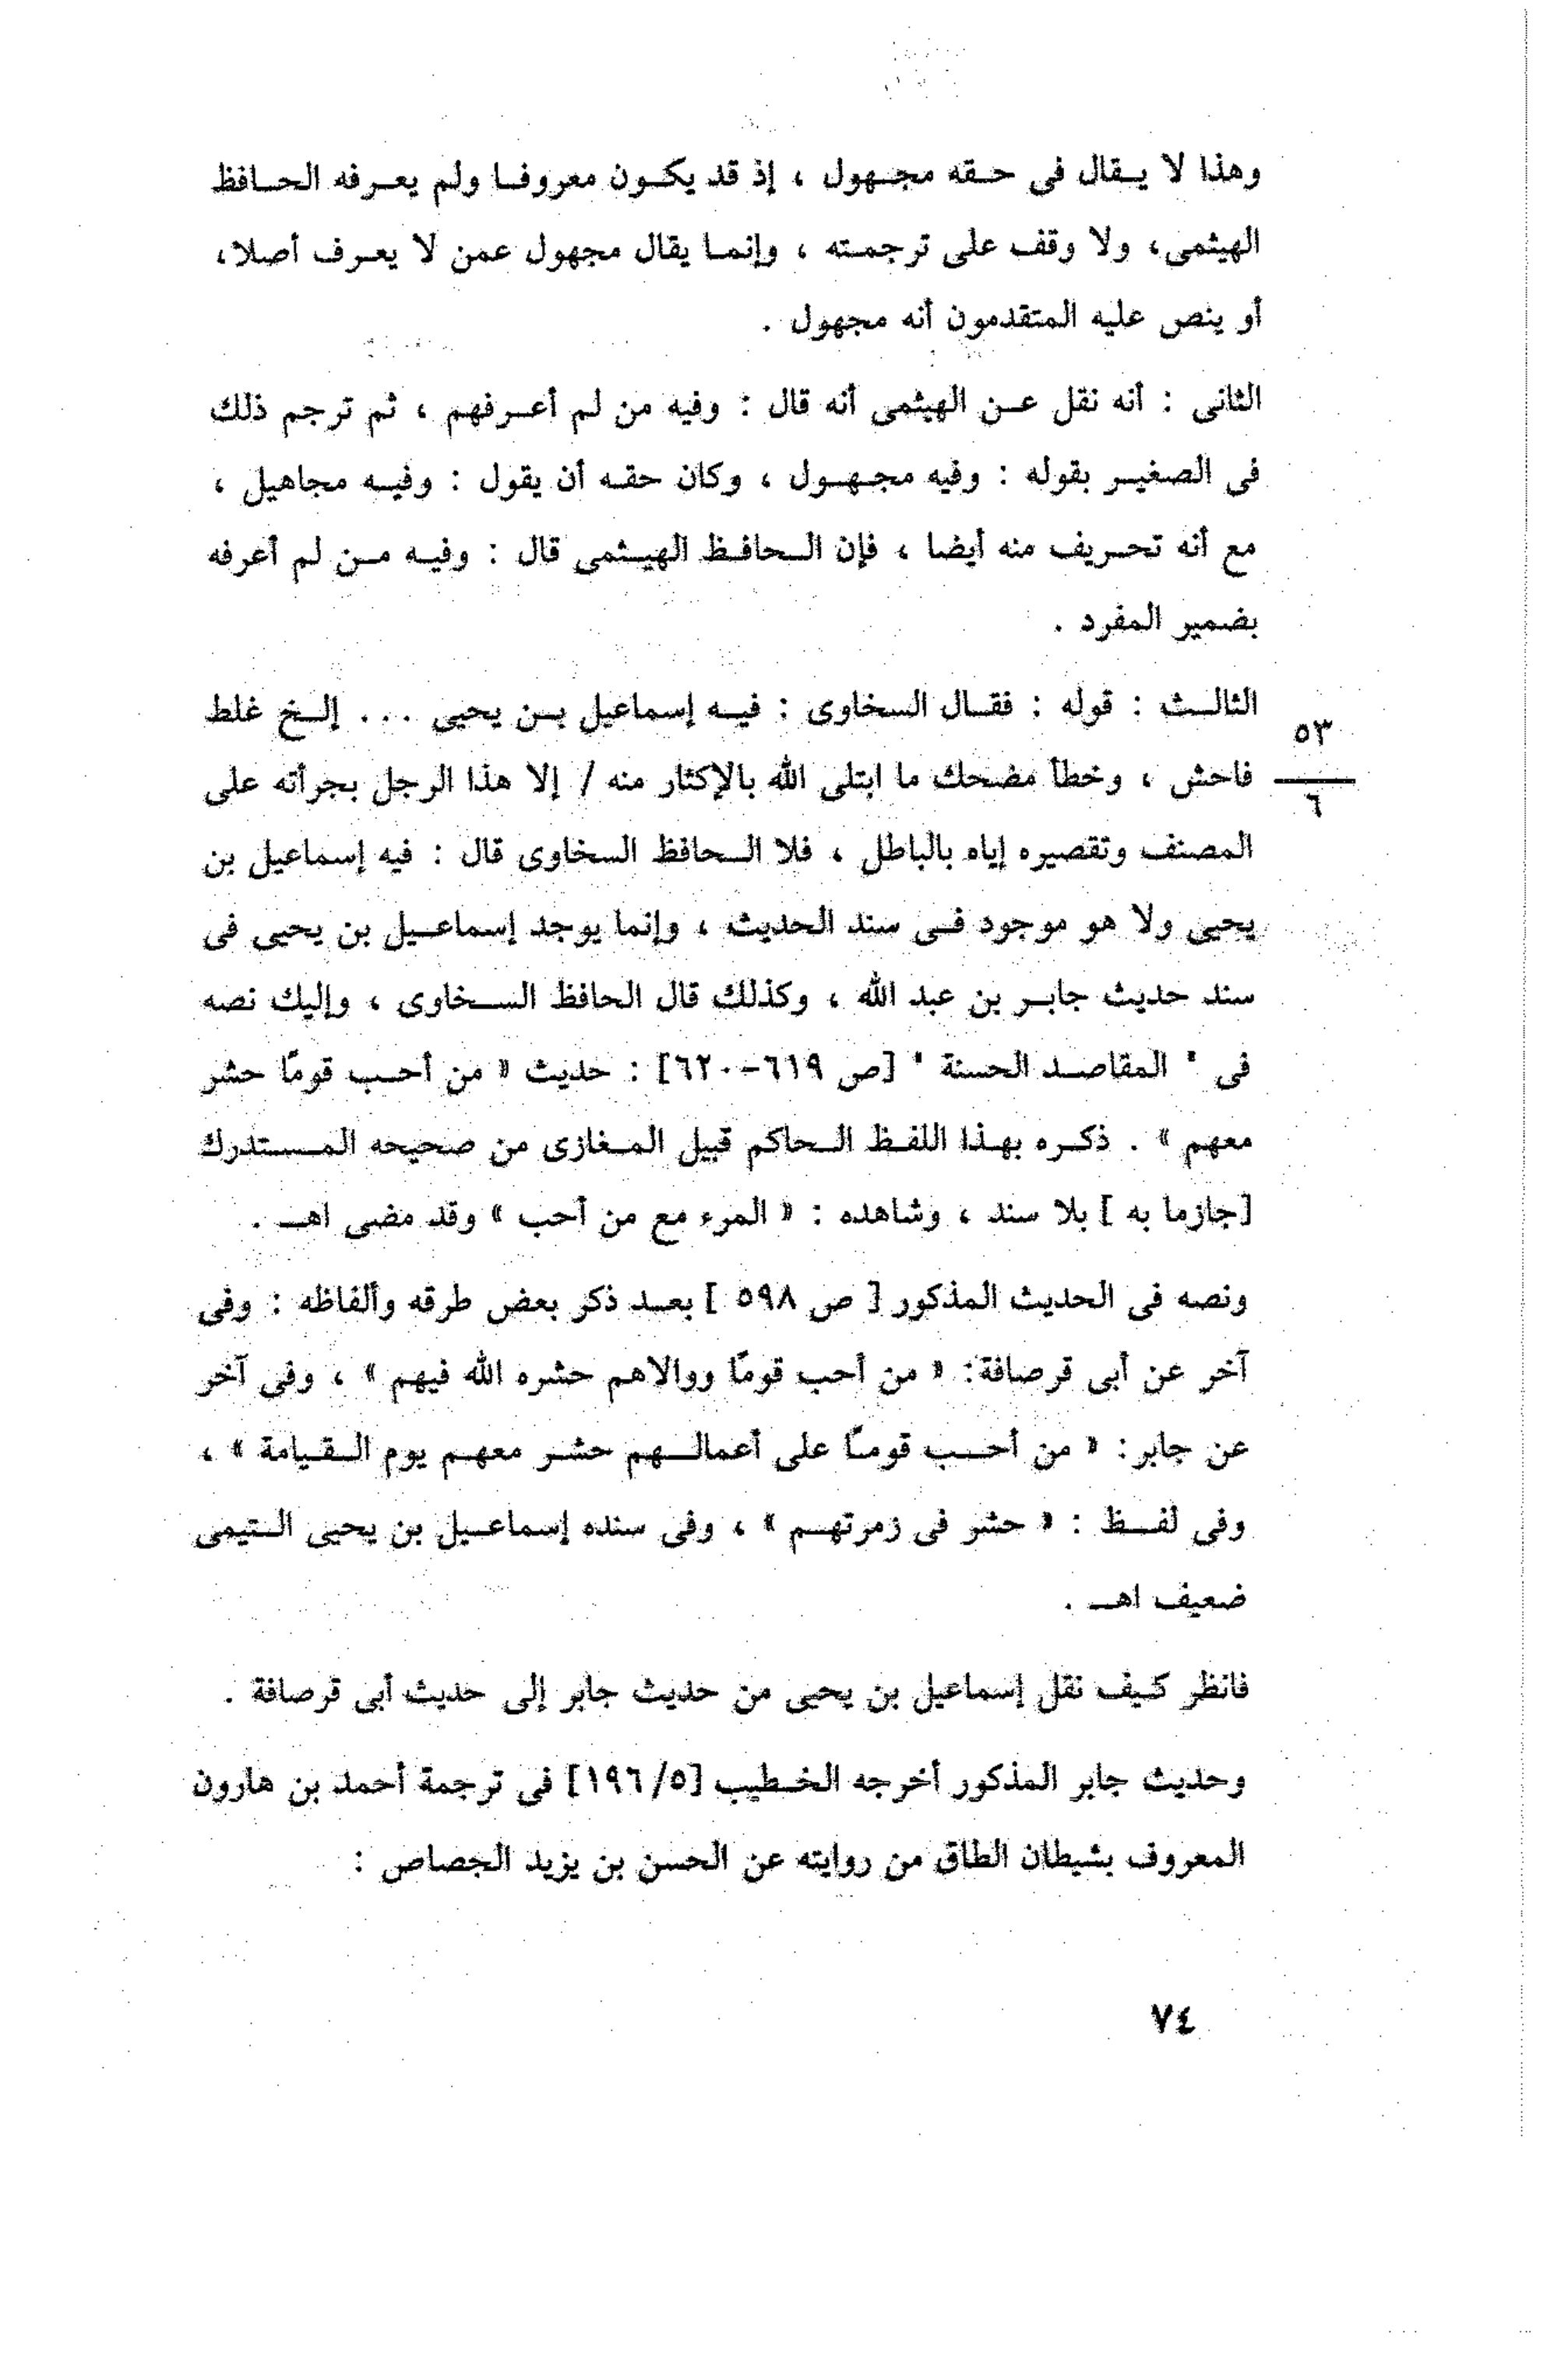 وهذا لا يقال فى حقه مجهول ، إذ قد يكون معروفا ولم يعرفه الحافظ
الهيثمى، ولا وقف على ترجمته ، وإنما يقال مجهول عمن لا يعرف أصلا،
أو ينص عليه المتقدمون أنه مجهول .
الثانى : أنه نقل عن الهيثمى أنه قال : وفيه من لم أعرفهم ، ثم ترجم ذلك
فى الصغير بقوله : وفيه مجهول ، وكان حقه أن يقول : وفيه مجاهيل ،
مع أنه تحريف منه أيضا ، فإن الحافظ الهيثمى قال : وفيه من لم أعرفه
بضمير المفرد .
الثالث : قوله : فقال السخاوى : فيه إسماعيل بن يحيى ... إلخ غلط
٥٣
فاحش ، وخطأ مضحك ما ابتلى الله بالإكثار منه / إلا هذا الرجل بجرأته على
٦
المصنف وتقصيره إياه بالباطل ، فلا الحافظ السخاوى قال : فيه إسماعيل بن
يحيى ولا هو موجود فى سند الحديث ، وإنما يوجد إسماعيل بن يحيى فى
سند حديث جابر بن عبد الله ، وكذلك قال الحافظ السخاوى ، وإليك نصه
فى " المقاصد الحسنة " [ص ٦١٩-٦٢٠] : حديث « من أحب قومًا حشر
معهم » . ذكره بهذا اللفظ الحاكم قبيل المغازى من صحيحه المستدرك
[جازما به ] بلا سند ، وشاهده : « المرء مع من أحب » وقد مضى اهـ .
ونصه فى الحديث المذكور [ ص ٥٩٨ ] بعد ذكر بعض طرقه وألفاظه : وفى
آخر عن أبى قرصافة: « من أحب قومًا ووالاهم حشره الله فيهم » ، وفى آخر
عن جابر: « من أحب قومًا على أعمالهم حشر معهم يوم القيامة » ،
وفى لفظ : « حشر فى زمرتهم » ، وفى سنده إسماعيل بن يحيى التيمى
ضعيف اهـ .
فانظر كيف نقل إسماعيل بن يحيى من حديث جابر إلى حديث أبى قرصافة .
وحديث جابر المذكور أخرجه الخطيب [٥/ ١٩٦] فى ترجمة أحمد بن هارون
المعروف بشيطان الطاق من روايته عن الحسن بن يزيد الجصاص :
٧٤